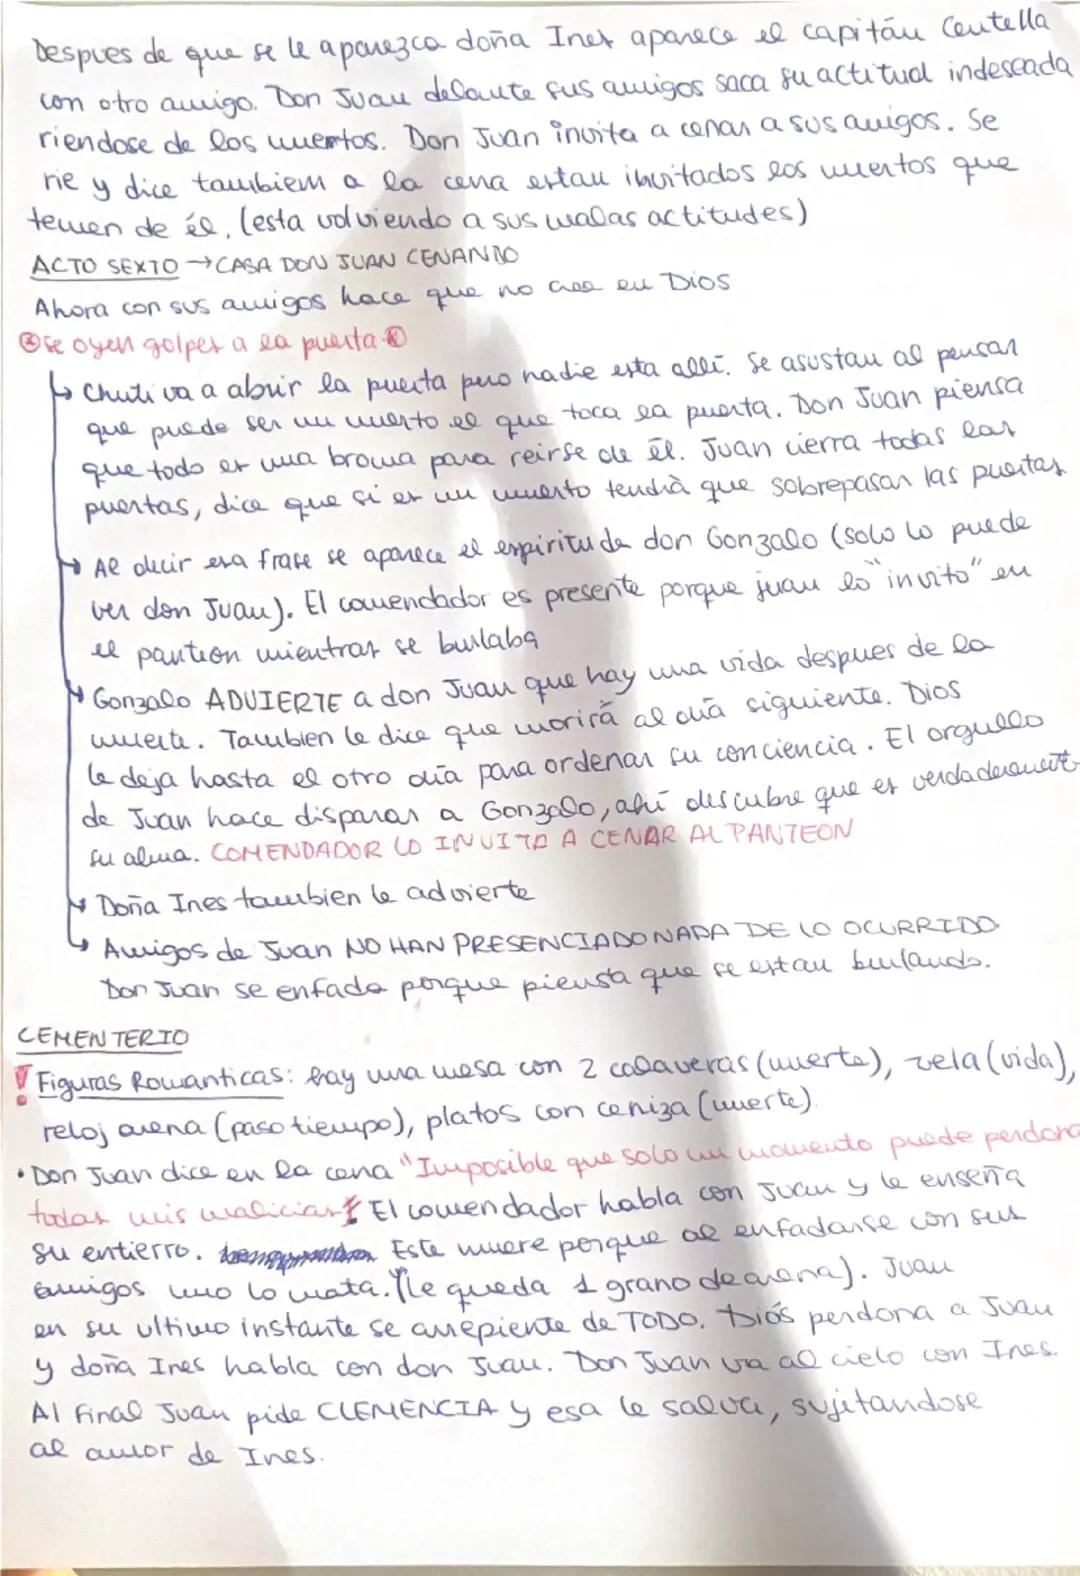 Despues de que se le aparezca doña Ines aparece el capitán Centella
con otro amigo. Don Juan delante sus amigos saca su actitud indeseada
riendose de los muertos. Don Juan invita a cenar a sus amigos. Se
rie y dice tambiem a la cena estan invitados los muertos que
temen de él. (esta volviendo a sus malas actitudes)
ACTO SEXTO → CASA DON JUAN CENANDO
Ahora con sus amigos hace que no cree en Dios
Se oyen golpes a la puerta
↳ Chuti va a abrir la puerta pero nadie esta allí. Se asustan al pensar
que puede ser un muerto el que toca la puerta. Don Juan piensa
que todo es una broma para reirse de él. Juan cierra todas las
puertas, dice que si es un muerto tendrà que sobrepasar las puertas
→ Al decir esa frase se aparece el espiritu de don Gonzalo (solo lo puede
ver don Juan). El comendador es presente porque juan lo "invito" en
el panteon mientras se burlaba
→ Gonzalo ADVIERTE a don Juan que hay una vida despues de la
muerte. Tambien le dice que morirá al día siguiente. Dios
le deja hasta el otro día para ordenar su conciencia. El orgullo
de Juan hace disparar a Gonzalo, ahí descubre que es verdaderament
su alma. COMENDADOR LO INVITA A CENAR AL PANTEON
→ Doña Ines tambien le advierte
→ Amigos de Juan NO HAN PRESENCIADO NADA DE LO OCURRIDO.
Don Juan se enfada porque piensa que se estan burlando.
CEMENTERIO
! Figuras Romanticas: hay una mesa con 2 calaveras (muerte), vela (vida),
reloj arena (paso tiempo), platos con ceniza (muerte).
• Don Juan dice en la cena "Imposible que solo un momento puede perdona
todas mis malicias" El comendador habla con Juan y le enseña
su entierro. Este muere porque al enfadarse con sus
amigos uno lo mata. (le queda 1 grano de arena). Juan
en su ultimo instante se arrepiente de TODO. Diós perdona a Juan
y doña Ines habla con don Juan. Don Juan va al cielo con Ines.
Al final Juan pide CLEMENCIA y esa le salva, sujetandose
al amor de Ines.